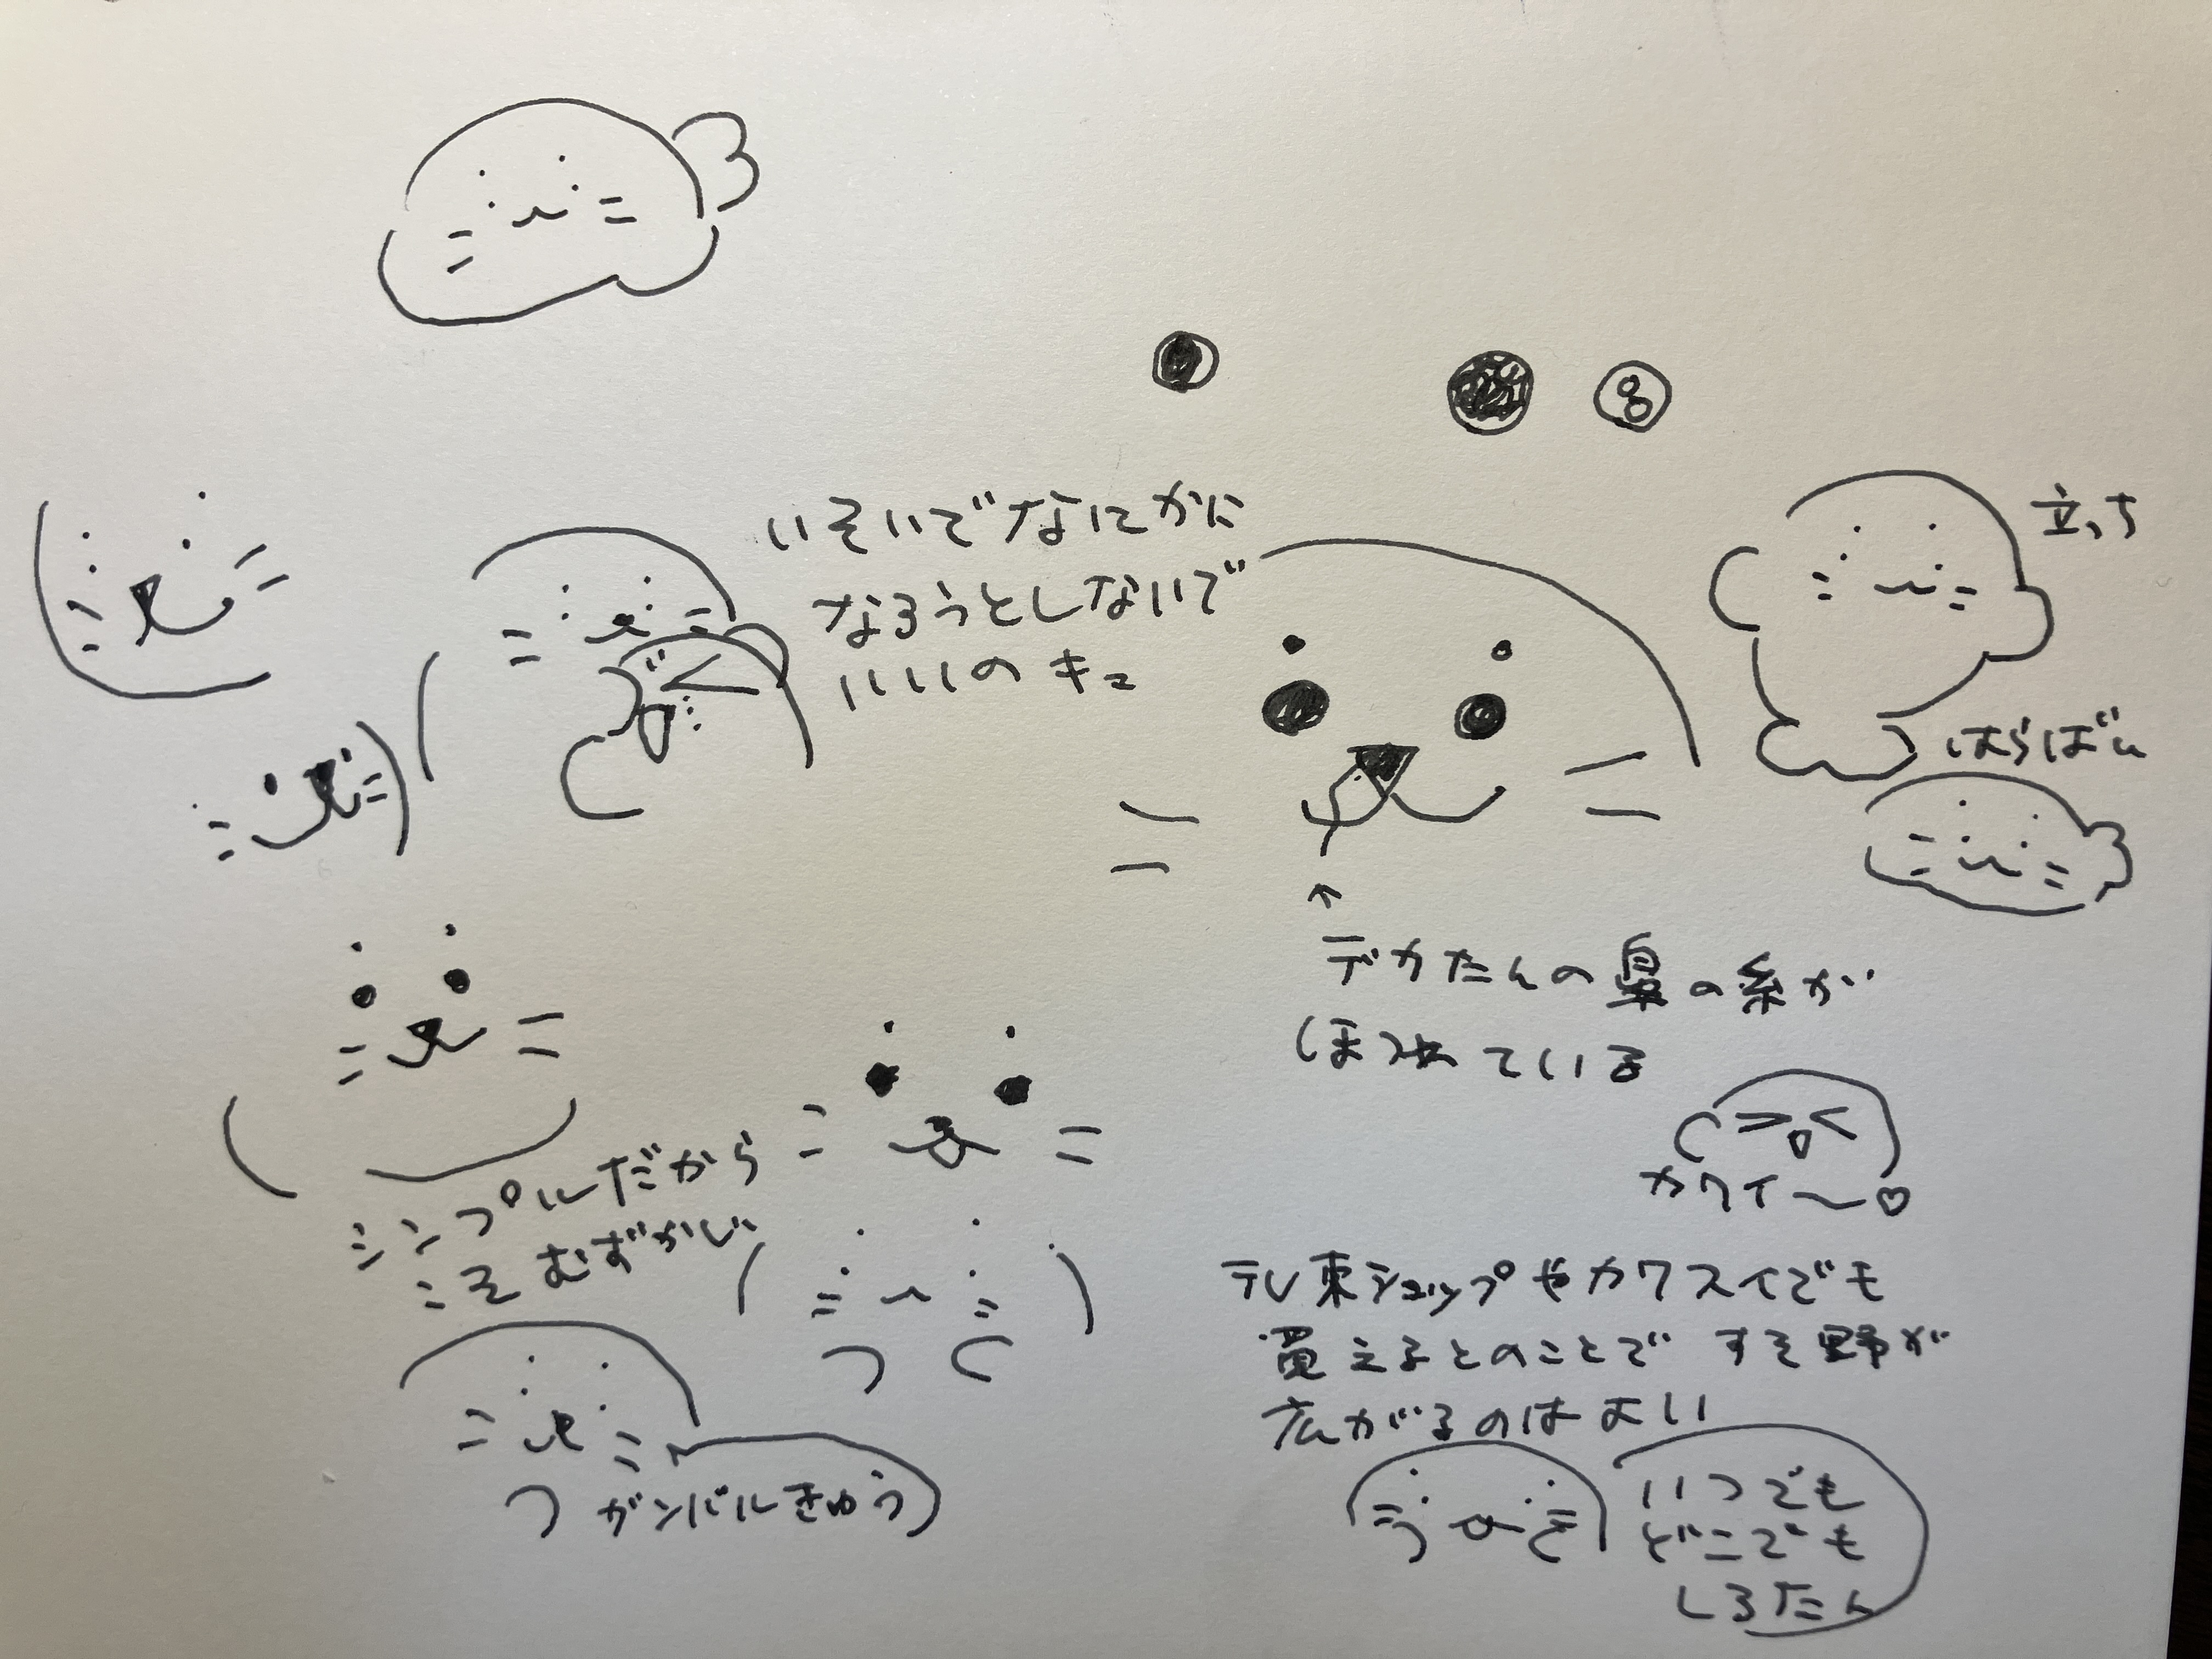 いそいでなにかに
なろうとしないで
いいのキュ
立っち
はらばい
デカたんの鼻の糸が
ほつれている
カワイ〜♡
シンプルだから
こそむずかしい
テレ東ショップやカワスイでも
買えるとのことですそ野が
広がるのはよい
ガンバルきゅう
いつでも
どこでも
しろたん